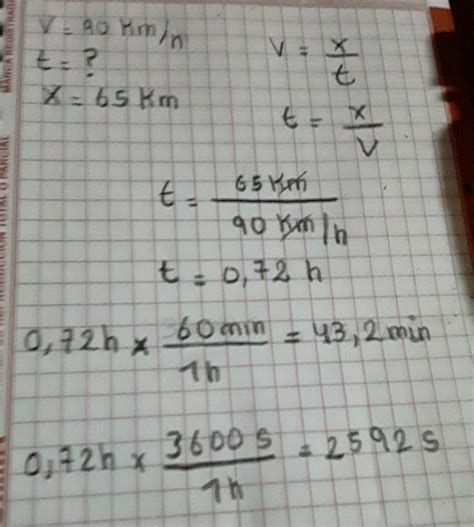 v = 90 Km/h
t = ?
x = 65 Km
v = x/t
t = x/v
t = 65 Km / 90 Km/h
t = 0,72 h
0,72h x 60min/1h = 43,2min
0,72h x 3600s/1h = 2592s